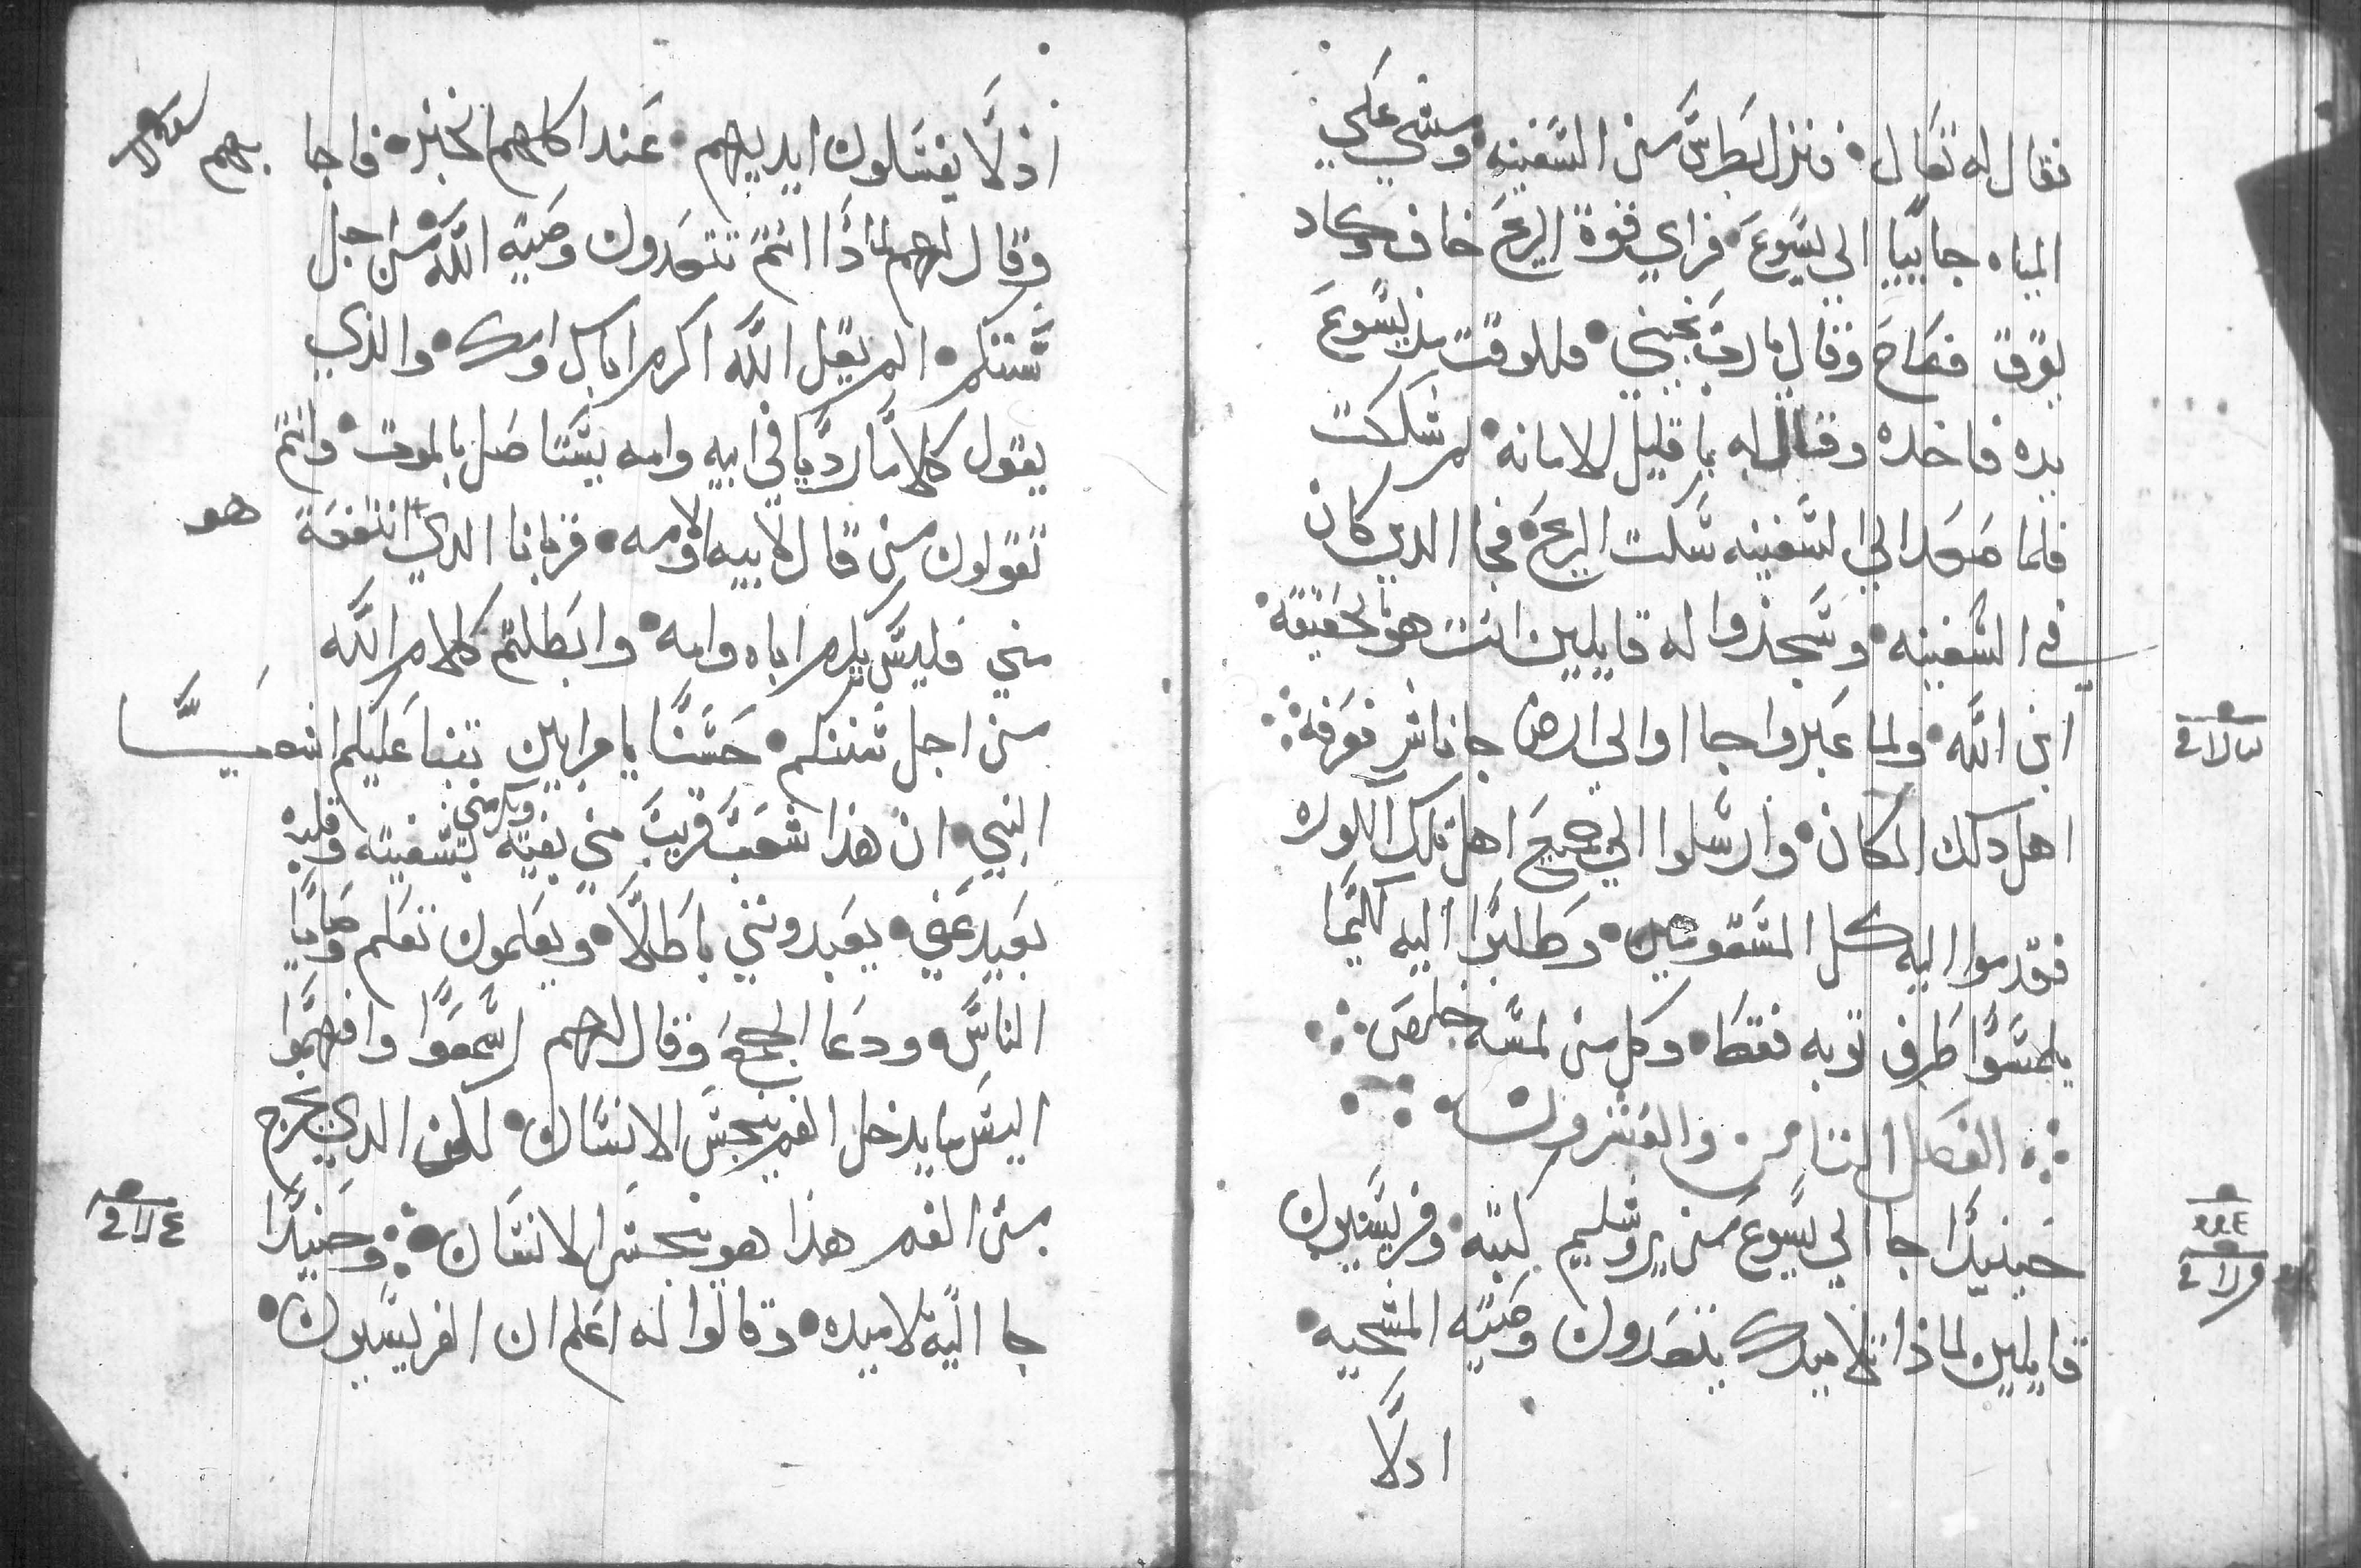 فقال له تعال • فنزل بطرس من السفينه • ومشي علي
المياه جاييا الي يسوع • فراي قوة الريح خاف وكاد
يغرق فصاح وقال يا رب نجيني • فللوقت مد يسوع
يده فاخده وقال له يا قليل الامانه • لم شككت
فلما صعدا الي السفينه سكت الريح • فجا الدين كان
في السفينه • وسجدوا له قايلين انت هو بالحقيقة •
ابن الله • ولما عبروا جااوا الي ارض جاناشر فعرفه
اهل دلك المكان • وارسلوا الي جميع اهل تلك الكوره
فقدموا اليه كل المسقومين • وطلبوا اليه كليما
يلمسوا طرف توبه فقط • وكل من لمسه خلص
الفصل التامن والعشرون
حينيدا جا الي يسوع من يروشليم كتبه • وفريسيون
قايلين لماذا تلاميدك يتعدون وصيه المشيخه •
ادلا
اذ لا يغسلون ايديهم • عند اكلهم الخبز • فاجا بهم
وقال لهم لماذا انتم تتعدون وصيه الله من اجل
سنتكم • الم يقل الله اكرم اباك وامك • والذي
يقول كلاما رديا في ابيه وامه يستاصل بالموت • وانتم
تقولون من قال لابيه او لامه • قربانا الدي انتفعة هو
مني فليس يكرم اباه وامه • وابطلتم كلام الله
من اجل سننكم • حسنا يا مرايين تنبا عليكم اشعيا
النبي • ان هذا شعب قريب مني بفيه ويكرمني بشفيته وقلبه
بعيد عني • يعبدونني باطلا • ويعلمون تعلم وصايا
الناس • ودعا الجمع وقال لهم اسمعوا وافهموا
اليس ما يدخل الفم ينجس الانسان • لكن الدي يخرج
من الفم هذا هو ينجس الانسان • وحينيدا
جا اليه تلاميده • وقالوا له اعلم ان الفريسيون •